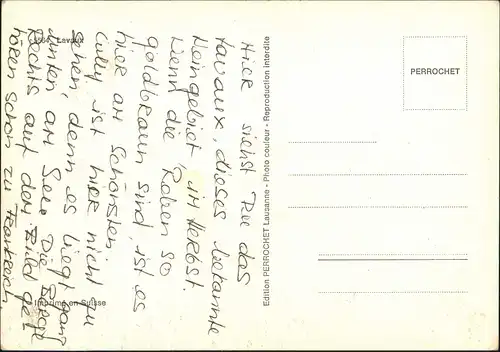 Hier siehst Du das
Lavaux, dieses bekannte
Weingebiet, im Herbst.
Wenn die Reben so
goldbraun sind, ist es
hier am schönsten
Cully ist hier nicht zu
sehen, denn es liegt ganz
unten am See. Die Berge
Rechts auf dem Bild ge-
hören schon zu Frankreich
Lavaux
Imprimé en Suisse
Edition PERROCHET Lausanne - Photo couleur - Reproduction interdite
PERROCHET